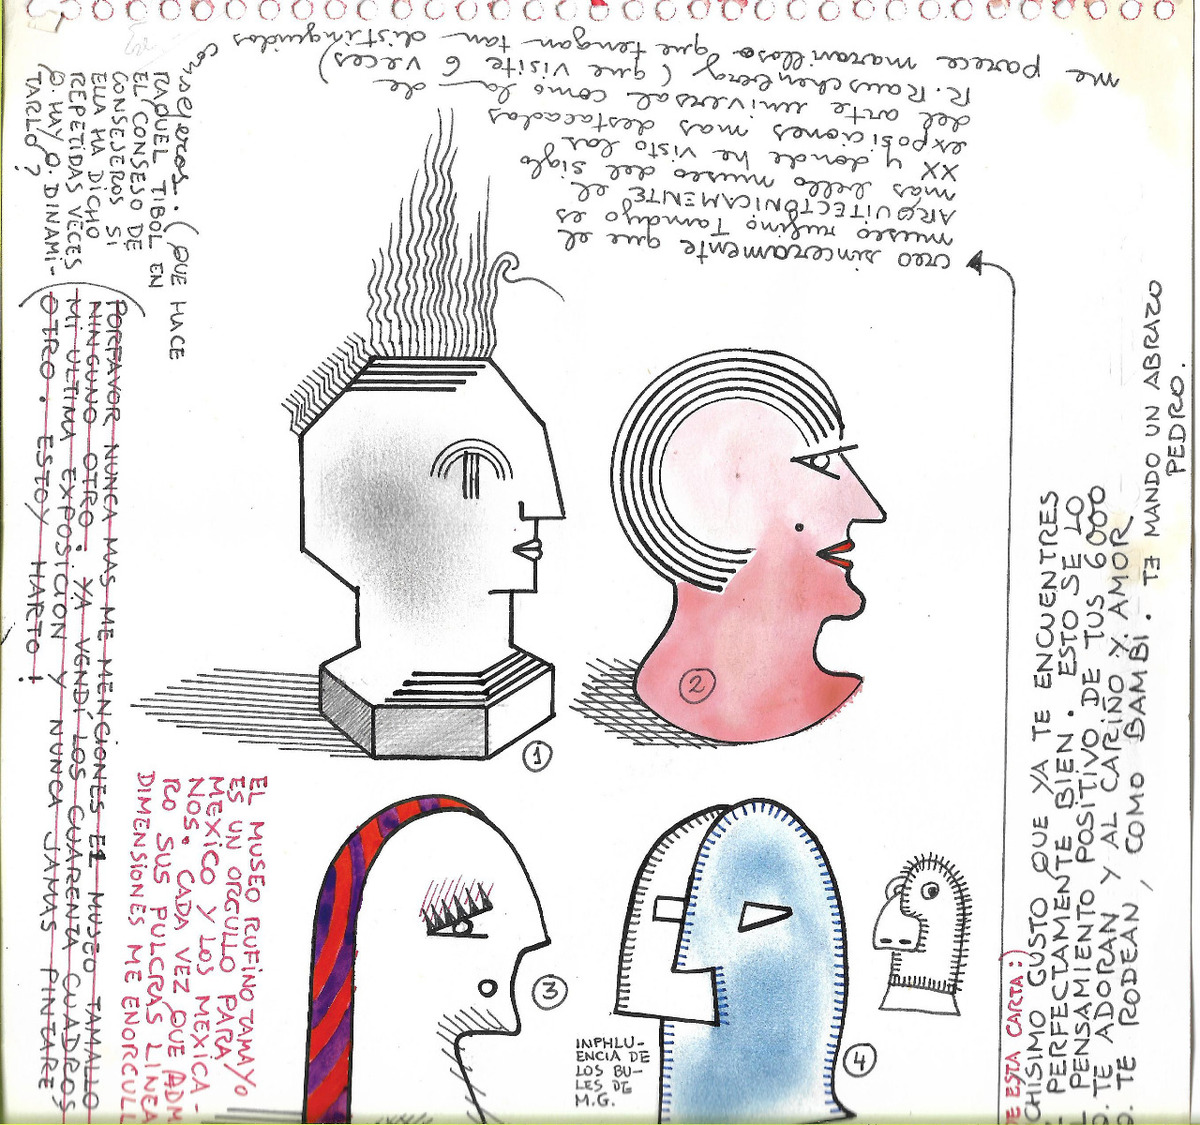 DE ESTA CARTA :)
CHISIMO GUSTO QUE YA TE ENCUENTRES
PERFECTAMENTE BIEN. ESTO SE LO
L PENSAMIENTO POSITIVO DE TUS 6000
O. TE ADORAN Y AL CARIÑO Y AMOR
O. TE RODEAN, COMO BAMBI. TE MANDO UN ABRAZO
PEDRO.
creo sinceramente que el
museo rufino Tamayo es
ARQUITECTÓNICAMENTE el
mas bello museo del siglo
XX y donde he visto las
exposiciones mas destacadas
del arte universal como la de
R. Rauschenberg (que visite 6 veces)
me parece maravilloso que tengan tan distinguidos
consejeros. (QUE HACE
RAQUEL TIBOL EN
EL CONSEJO DE
CONSEJEROS SI
ELLA HA DICHO
REPETIDAS VECES
Q. HAY Q. DINAMI-
TARLO?
PORFAVOR NUNCA MAS ME MENCIONES EL MUSEO TAMALLO
NINGUNO OTRO. YA VENDÍ LOS CUARENTA CUADROS
MI ULTIMA EXPOSICION Y NUNCA JAMAS PINTARE
OTRO. ESTOY HARTO!
EL MUSEO RUFINO TAMAYO
ES UN ORGULLO PARA
MEXICO Y LOS MEXICA-
NOS. CADA VEZ QUE ADM
RO SUS PULCRAS LINEA
DIMENSIONES ME ENORGULL
1
2
3
4
INPHLU-
ENCIA DE
LOS BU-
LES DE
M.G.